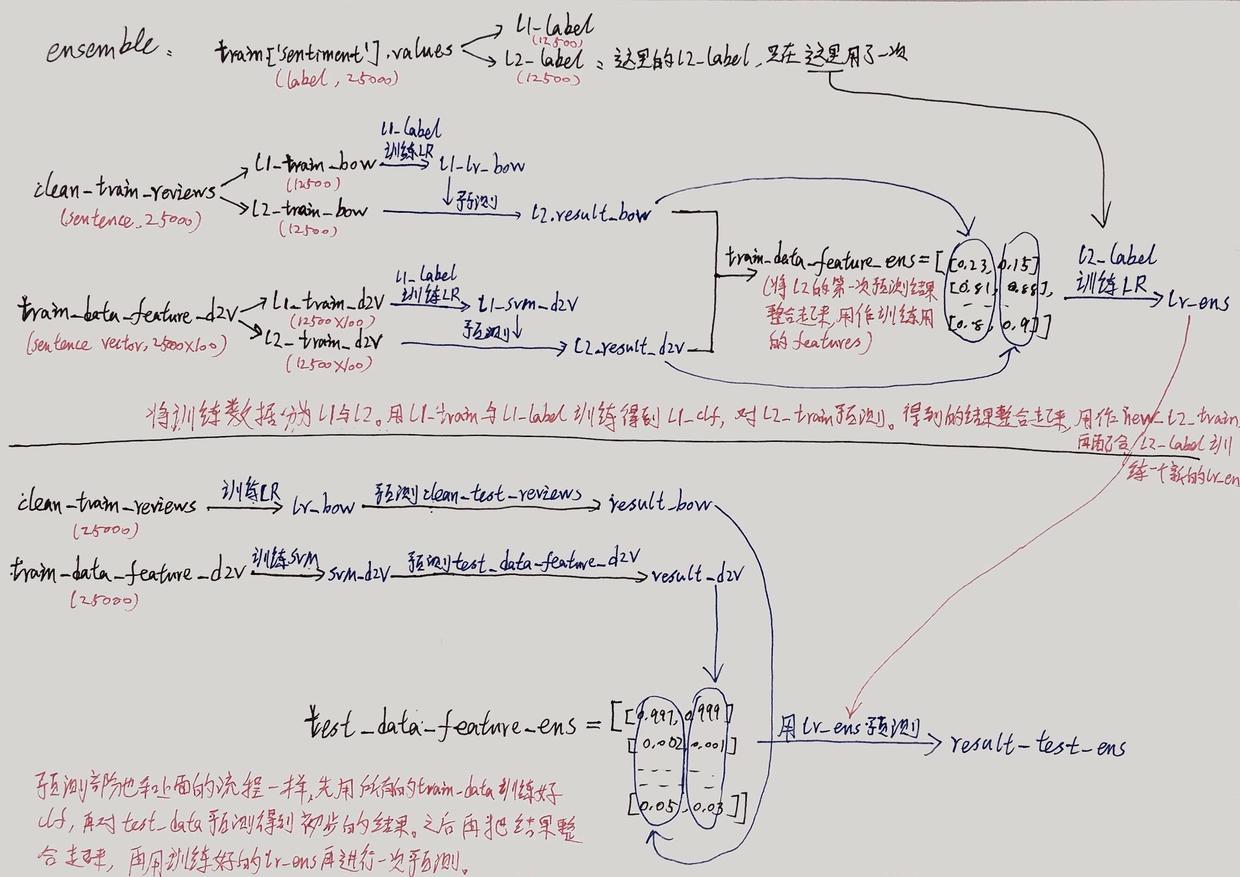 ensemble:
train['sentiment'].values
(label, 25000)
L1-label
(12500)
L2-label
(12500)
: 这里的L2-label, 只在这里用了一次
clean-train-reviews
(sentence, 25000)
L1-train-bow
(12500)
L2-train-bow
(12500)
L1-label
训练LR
L1-lr-bow
预测
L2.result-bow
train-data-feature-d2v
(sentence vector, 25000X100)
L1-train-d2v
(12500X100)
L2-train-d2v
(12500X100)
L1-label
训练LR
L1-svm-d2v
预测
L2.result-d2v
train-data-feature-ens=[[0.23, 0.15]
[0.81, 0.88],
- -
[0.8, 0.9]]
(将L2的第一次预测结果
整合起来, 用作训练用
的 features)
L2-label
训练LR
lr-ens
将训练数据分为L1与L2。用L1-train与L1-label训练得到L1-clf, 对L2-train预测。得到的结果整合起来, 用作new-L2-train,
再配合L2-label训
练一个新的lr-en
clean-train-reviews
(25000)
训练LR
lr-bow
预测clean-test-reviews
result-bow
train-data-feature-d2v
(25000)
训练SVM
svm-d2v
预测test-data-feature-d2v
result-d2v
test-data-feature-ens = [[0.997, 0.999]
[0.002, 0.001]
- - -
- - -
[0.05, 0.03]]
用lr-ens预测
result-test-ens
预测部分也和上面的流程一样, 先用所有的train-data训练好
clf, 再对test-data预测得到初步的结果。之后再把结果整
合起来, 再用训练好的lr-ens再进行一次预测。